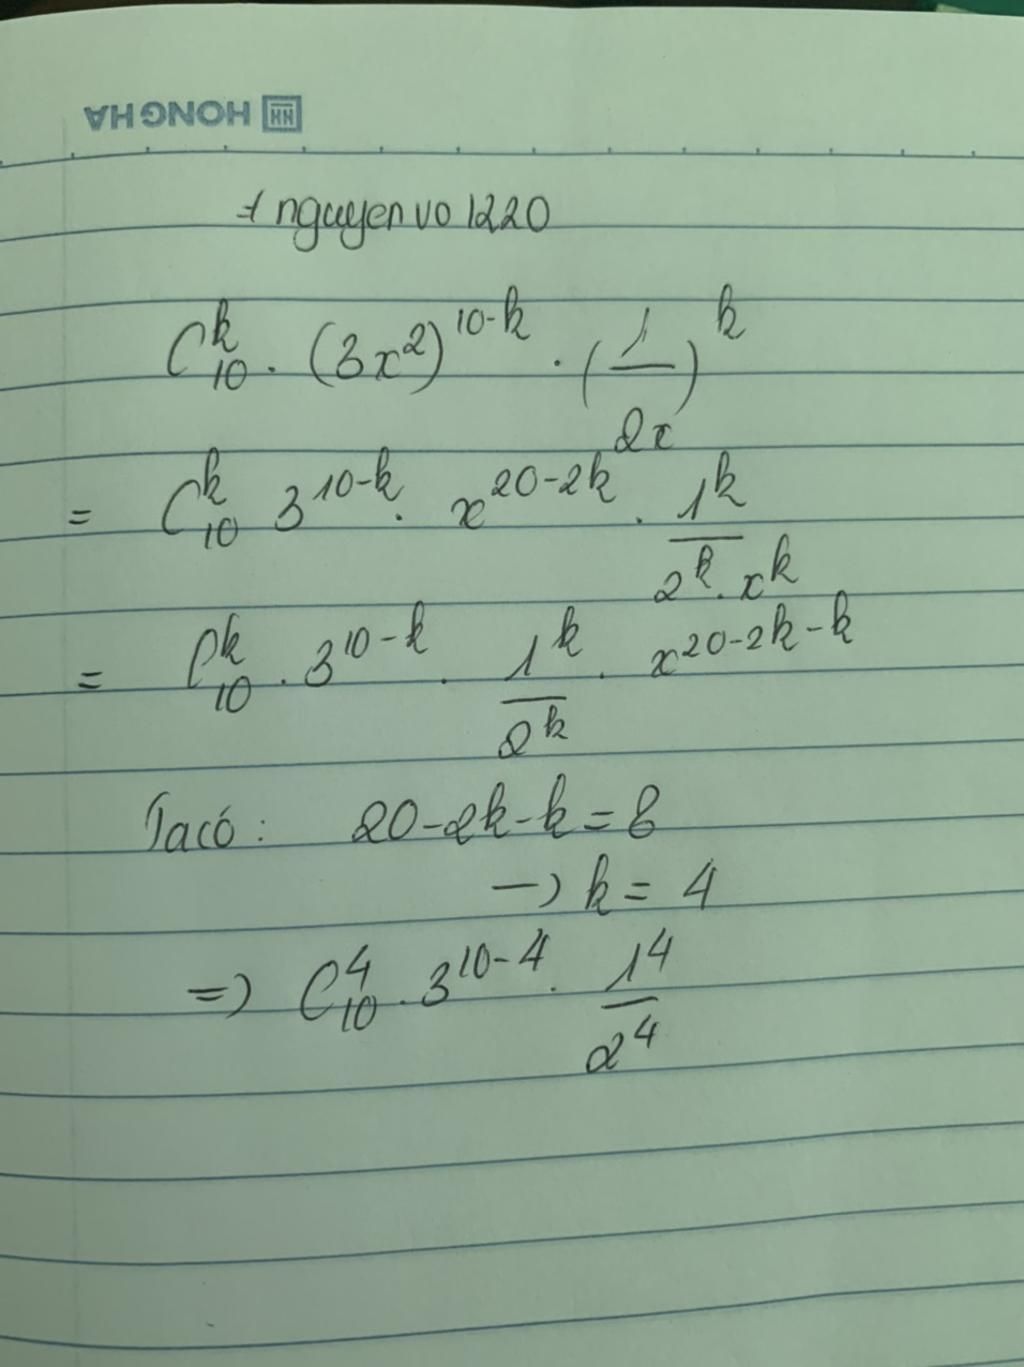 HONG HA
+ nguyenvo1220
C₁₀ᵏ . (3x²)¹⁰⁻ᵏ . (1/2x)ᵏ
= C₁₀ᵏ 3¹⁰⁻ᵏ . x²⁰⁻²ᵏ . 1ᵏ/2ᵏ.xᵏ
= C₁₀ᵏ . 3¹⁰⁻ᵏ . 1ᵏ/2ᵏ . x²⁰⁻²ᵏ⁻ᵏ
Ta có : 20-2k-k=8
→ k = 4
=> C₁₀⁴ . 3¹⁰⁻⁴ . 1⁴/2⁴